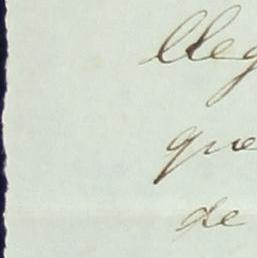 lleg
que
de